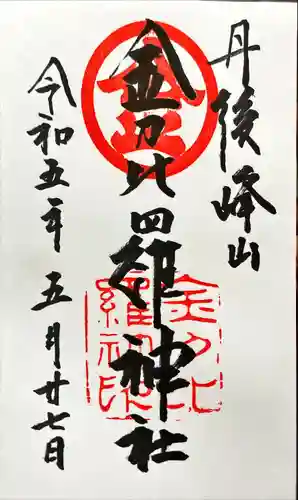 丹後峰山
金刀比羅神社
令和五年 五月廿七日
金
金刀比
羅神印